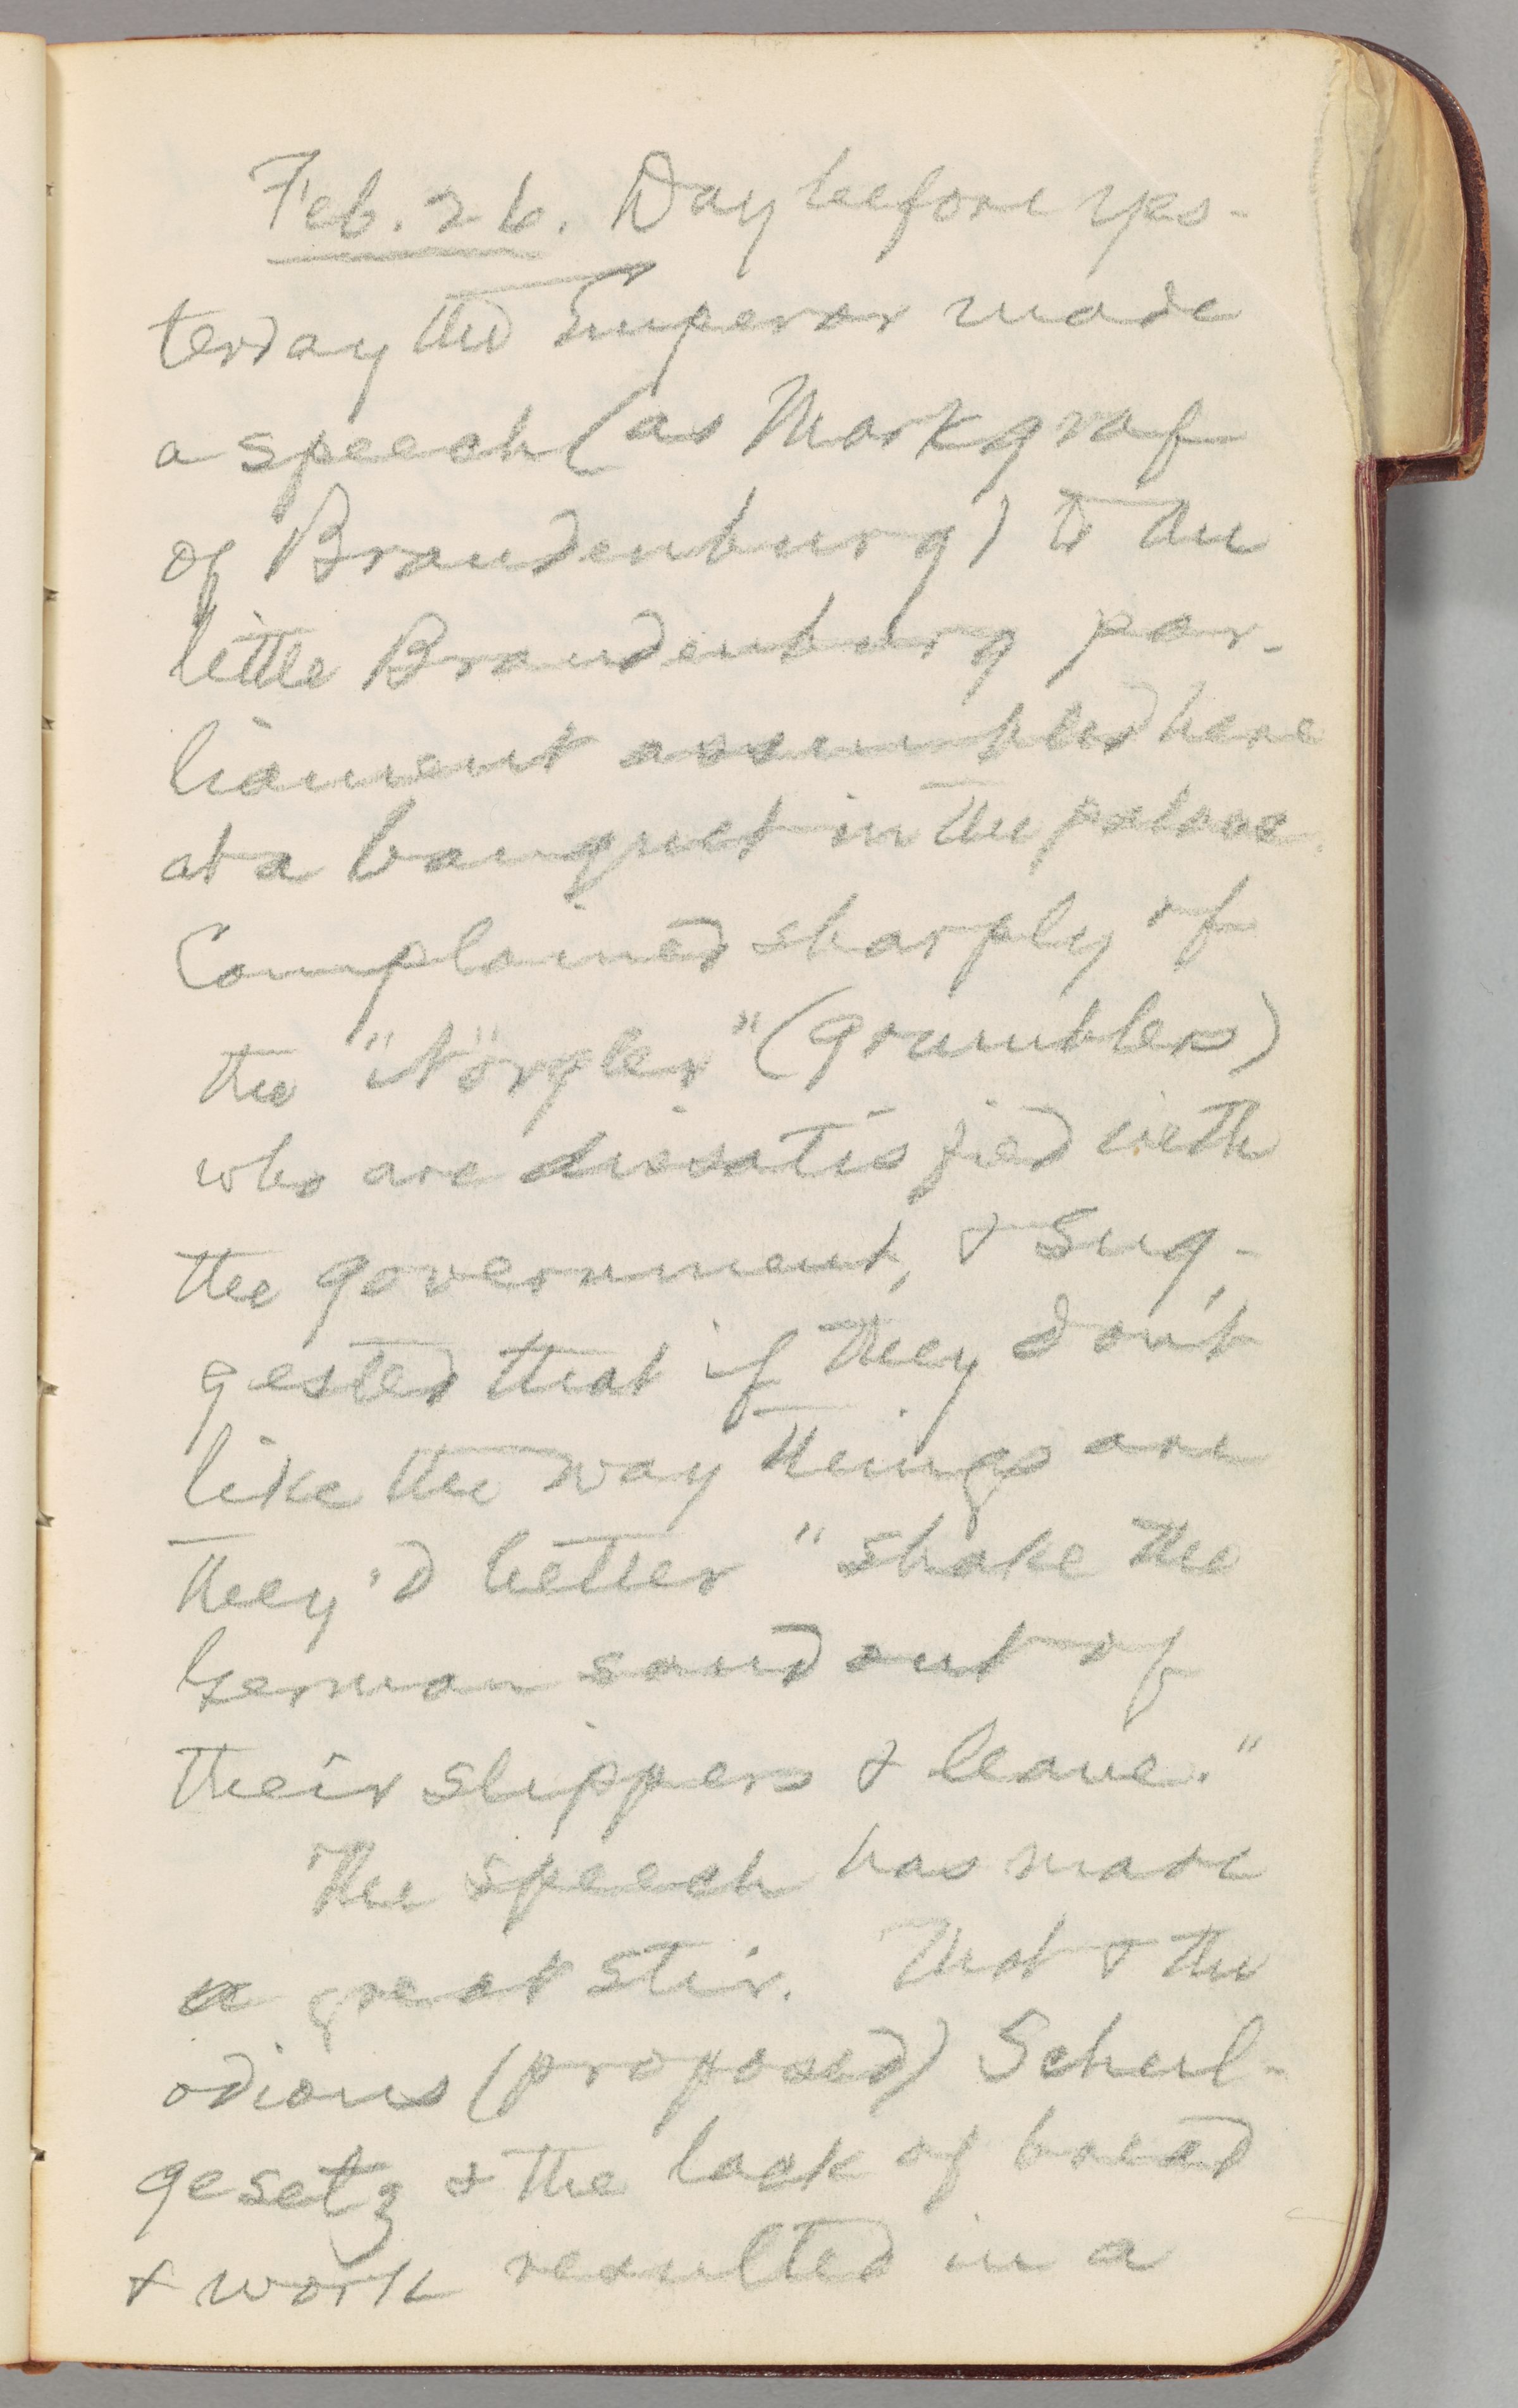 Feb. 26. Day before yes-
terday the Emperor made
a speech (as Markgraf
of Brandenburg) to the
little Brandenburg par-
liament assembled here
at a banquet in the palace.
Complained sharply of
the "Nörgler" (grumblers)
who are dissatisfied with
the government, & sug-
gested that if they don't
like the way things are
they'd better "shake the
German sand out of
their slippers & leave."
The speech has made
a great stir. That & the
odious (proposed) Schul-
gesetz & the lack of bread
& work resulted in a